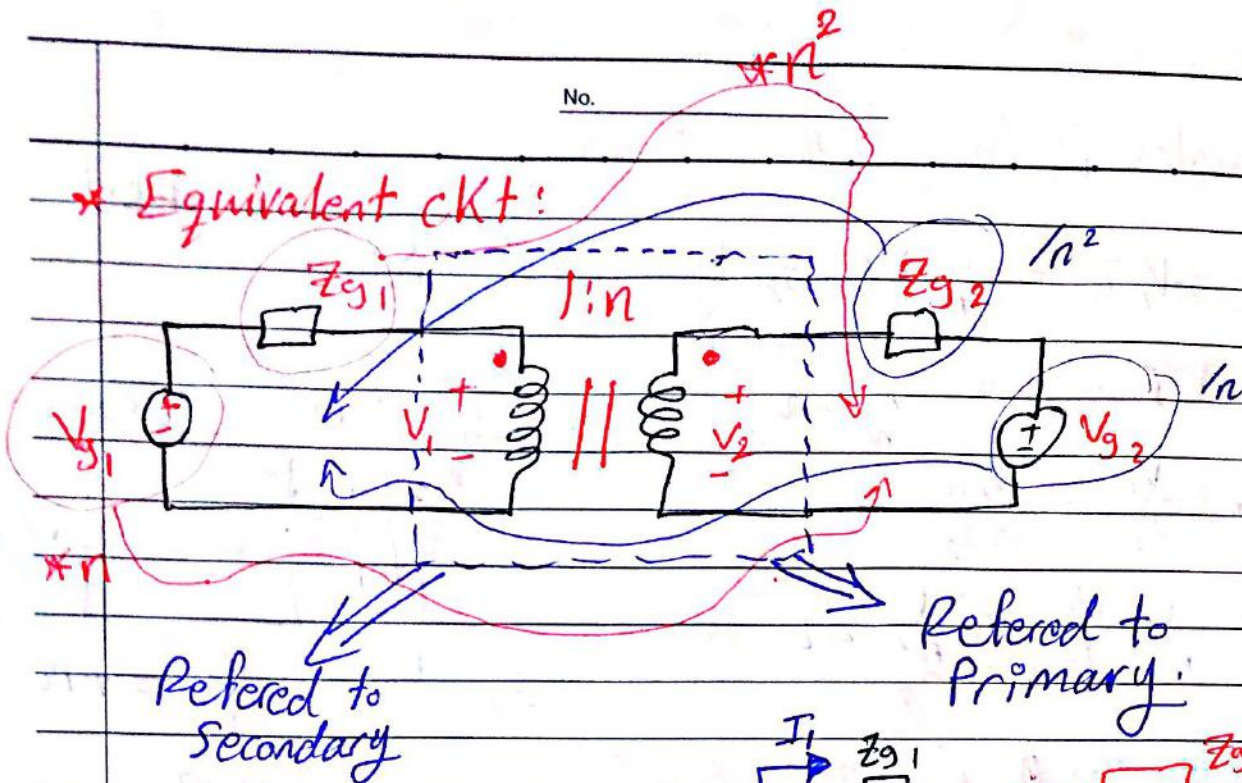 *n²
No.
* Equivalent ckt:
Zg1 1:n Zg2 /n²
Vg1 + V1 - + V2 - Vg2 /n
+
-
+
-
*n
Refered to
Primary.
Refered to
Secondary
I1 Zg1 Zg